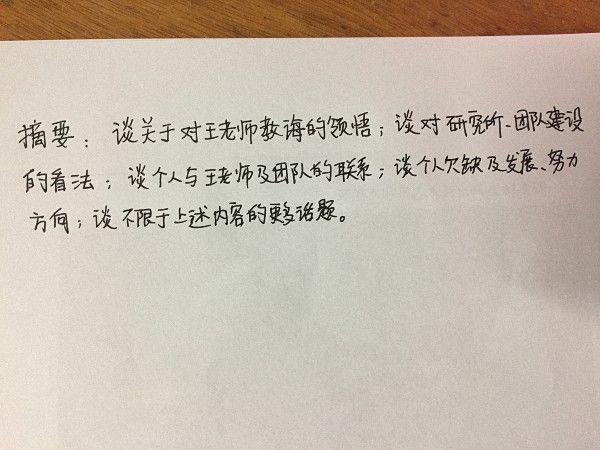 摘要：谈关于对王老师教诲的领悟；谈对研究所、团队建设
的看法；谈个人与王老师及团队的联系；谈个人欠缺及发展、努力
方向；谈不限于上述内容的更多话题。